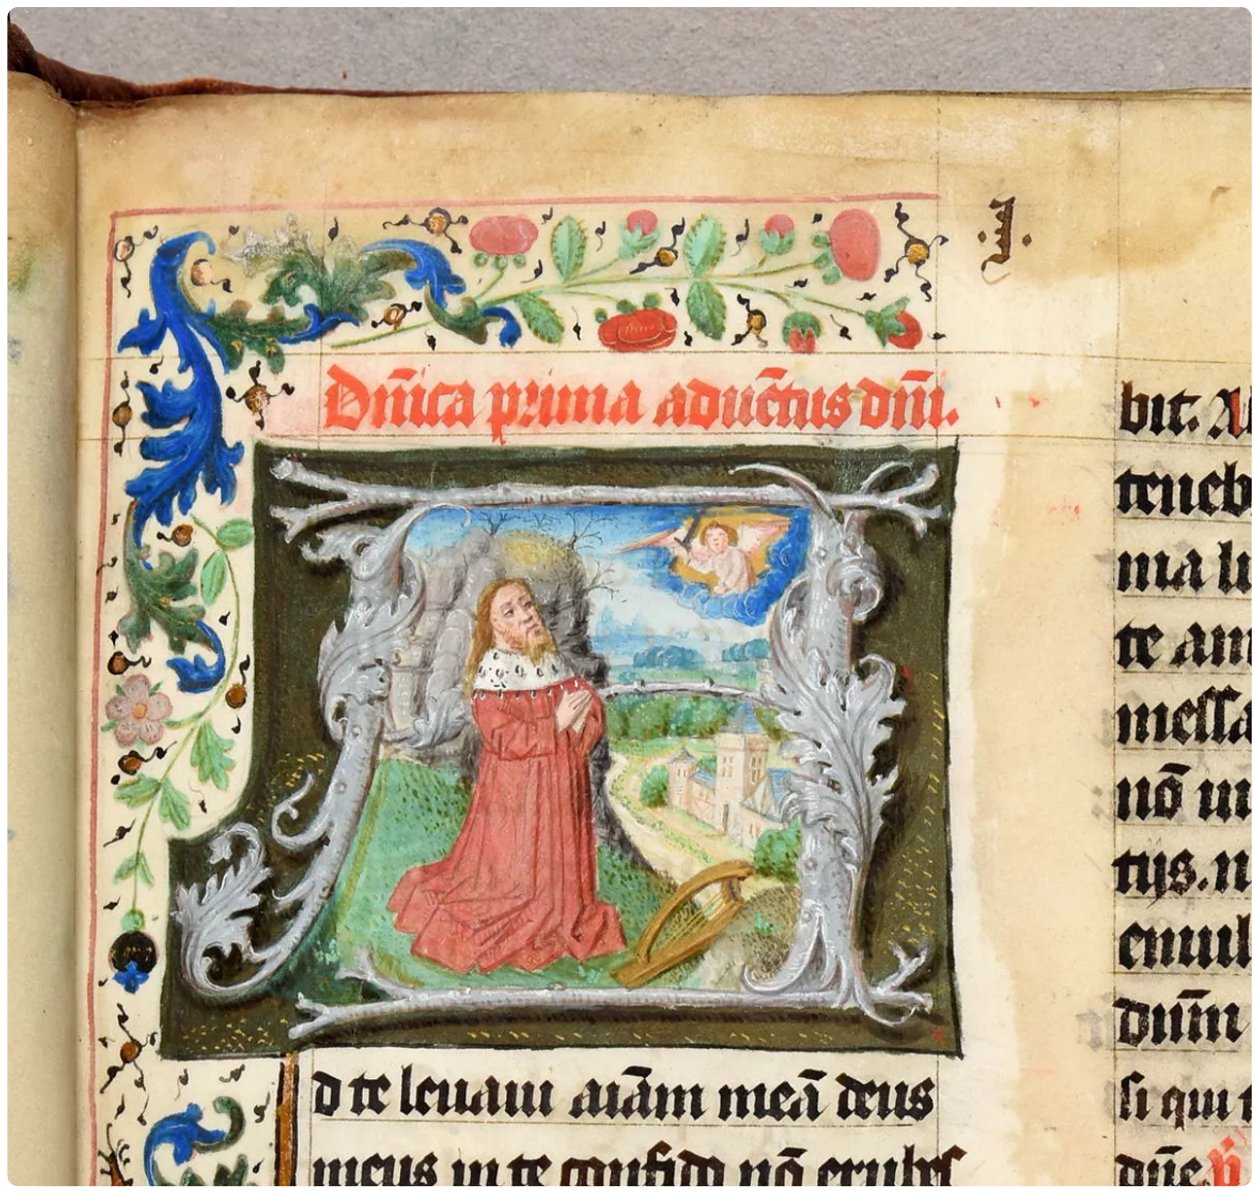 .I.
Dn̄ica prima aduētus dn̄i.
A
d te leuaui aīam meā deus
meus in te confido nō erubes
bit. A
teneb
ma lu
te am
messa
nō in
tijs. n
emul
dūm
si qui
dn̄e.